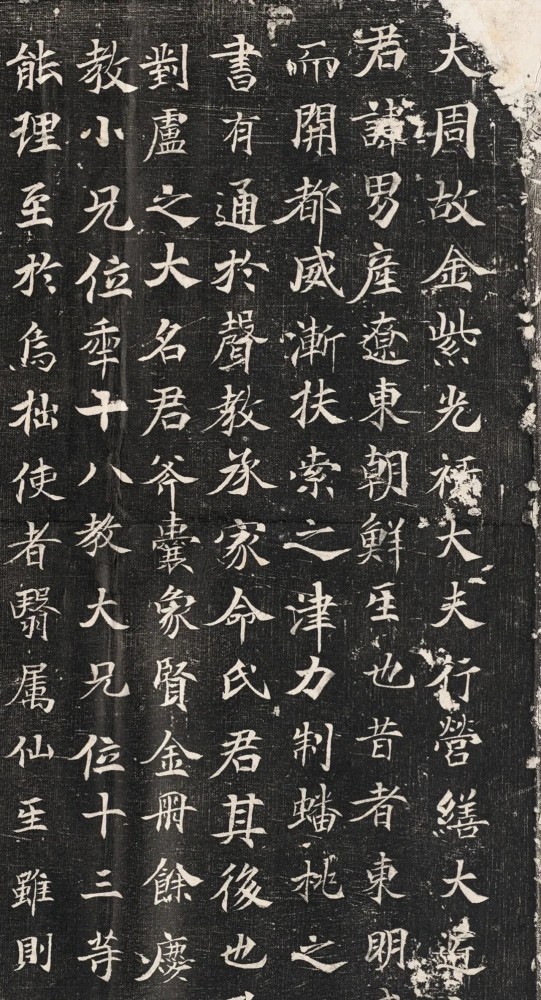 大周故金紫光祿大夫行營繕大匠
君諱男產遼東朝鮮𤯔也昔者東明
而開都威漸扶索之津力制蟠桃之
書有通於聲教承家命氏君其後也
對盧之大名君斧囊象賢金冊餘慶
教小兄位秊十八教大兄位十三等
能理至於烏拙使者翳属仙𤯔雖則